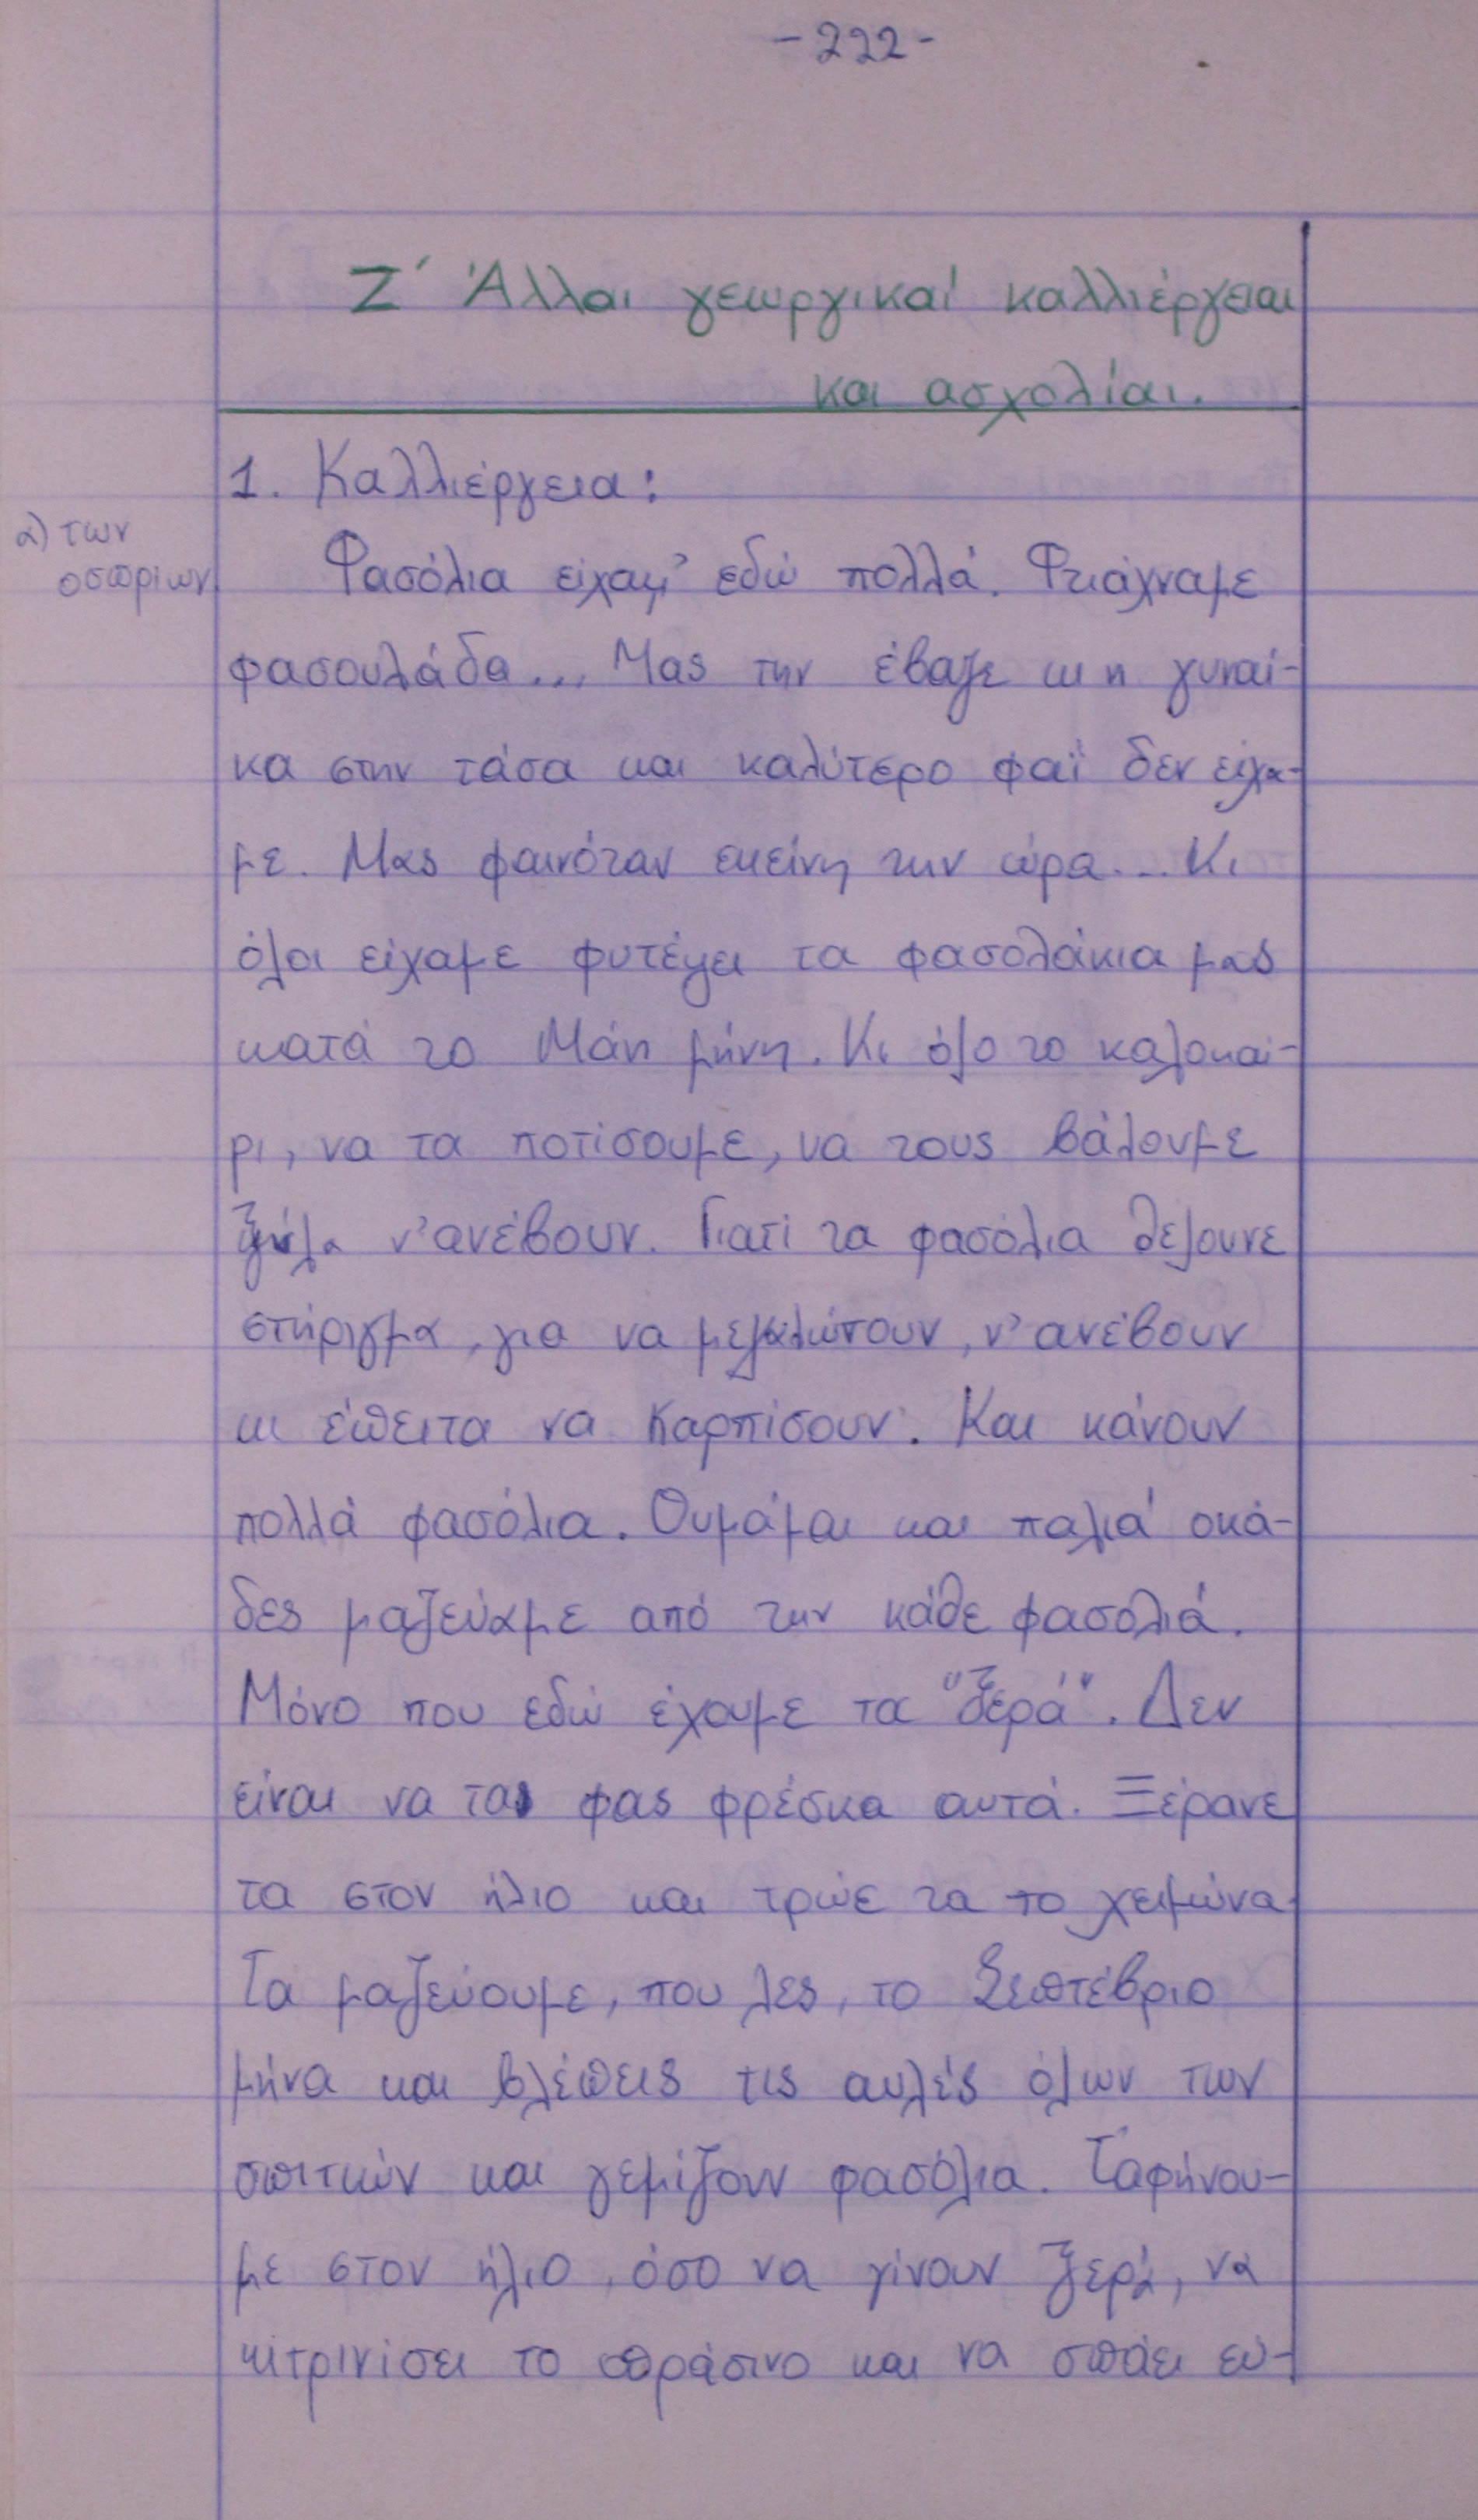 -222-
Ζ΄ Άλλαι γεωργικαί καλλιέργειαι
και ασχολίαι.
1. Καλλιέργεια:
α) των
οσπρίων
Φασόλια είχαμ' εδώ πολλά. Φτιάχναμε
φασουλάδα... Μας την έβαζε κι η γυναί-
κα στην τάσα και καλύτερο φαΐ δεν είχα-
με. Μας φαινόταν εκείνη την ώρα... Κι
όλοι είχαμε φυτέψει τα φασολάκια μας
κατά το Μάη μήνη. Κι όλο το καλοκαί-
ρι, να τα ποτίσουμε, να τους βάλουμε
ξύλα ν'ανέβουν. Γιατί τα φασόλια θέλουνε
στήριγμα, για να μεγαλώσουν, ν'ανέβουν
κι έπειτα να καρπίσουν. Και κάνουν
πολλά φασόλια. Θυμάμαι και παλιά οκά-
δες μαζεύαμε από την κάθε φασολιά.
Μόνο που εδώ έχουμε τα "ξερά". Δεν
είναι να τα φας φρέσκα αυτά. Ξέρανε
τα στον ήλιο και τρώε τα το χειμώνα.
Τα μαζεύουμε, που λες, το Σεπτέβριο
μήνα και βλέπεις τις αυλές όλων των
σπιτιών και γεμίζουν φασόλια. Ταφήνου-
με στον ήλιο, όσο να γίνουν ξερά, να
κιτρινίσει το πράσινο και να σπάει εύ-